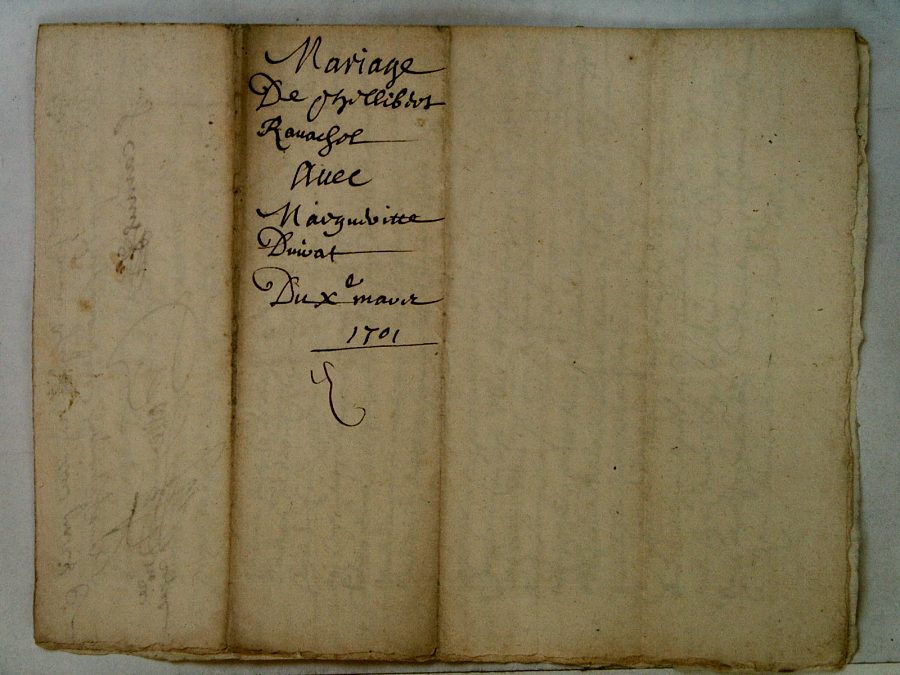 Mariage
De phillibert
Rauachol
Auec
Margueritte
Duivat
Du Xe mars
1701